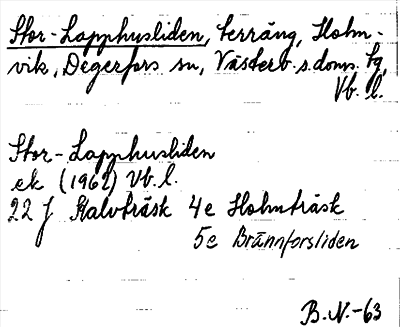 Stor-Lapphusliden, terräng, Holm-
vik, Degerfors sn, Västerb. s. doms. tg,
Vb. l.
Stor-Lapphusliden
ek (1962) Vb. l.
22 J Kalvträsk 4e Holmträsk
5e Brännforsliden
B.N.-63